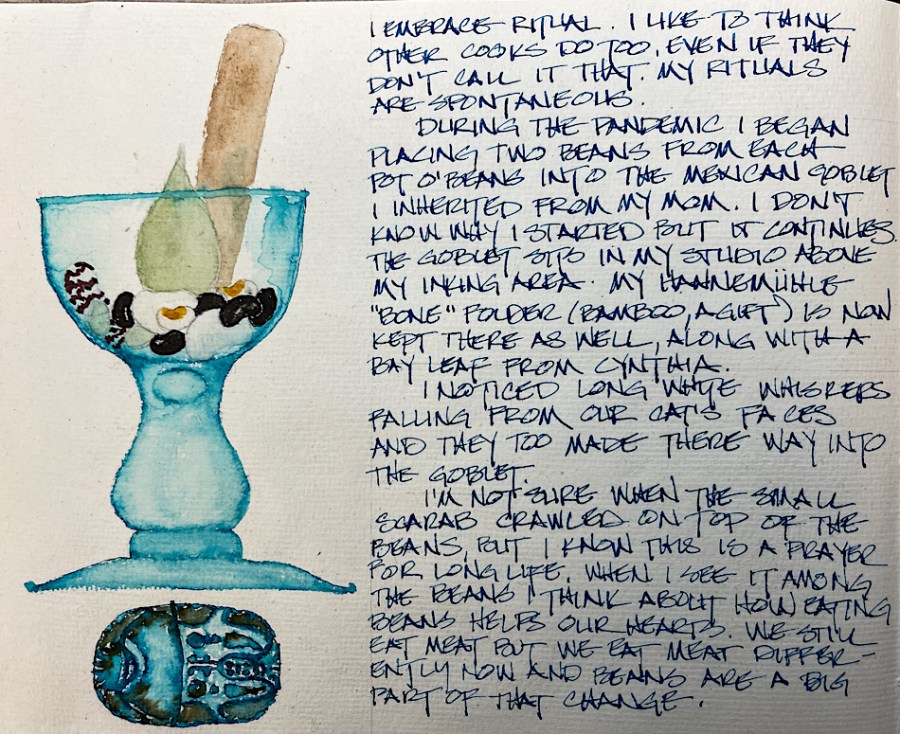 I EMBRACE RITUAL. I LIKE TO THINK
OTHER COOKS DO TOO, EVEN IF THEY
DON'T CALL IT THAT. MY RITUALS
ARE SPONTANEOUS.
DURING THE PANDEMIC I BEGAN
PLACING TWO BEANS FROM EACH
POT O'BEANS INTO THE MEXICAN GOBLET
I INHERITED FROM MY MOM. I DON'T
KNOW WHY I STARTED BUT IT CONTINUES.
THE GOBLET SITS IN MY STUDIO ABOVE
MY INKING AREA. MY HANNEMÜHLE
"BONE" FOLDER (BAMBOO, A GIFT) IS NOW
KEPT THERE AS WELL, ALONG WITH A
BAY LEAF FROM CYNTHIA.
I NOTICED LONG WHITE WHISKERS
FALLING FROM OUR CAT'S FACES
AND THEY TOO MADE THERE WAY INTO
THE GOBLET.
I'M NOT SURE WHEN THE SMALL
SCARAB CRAWLED ON TOP OF THE
BEANS, BUT I KNOW THIS IS A PRAYER
FOR LONG LIFE. WHEN I SEE IT AMONG
THE BEANS I THINK ABOUT HOW EATING
BEANS HELPS OUR HEARTS. WE STILL
EAT MEAT BUT WE EAT MEAT DIFFER-
ENTLY NOW AND BEANS ARE A BIG
PART OF THAT CHANGE.